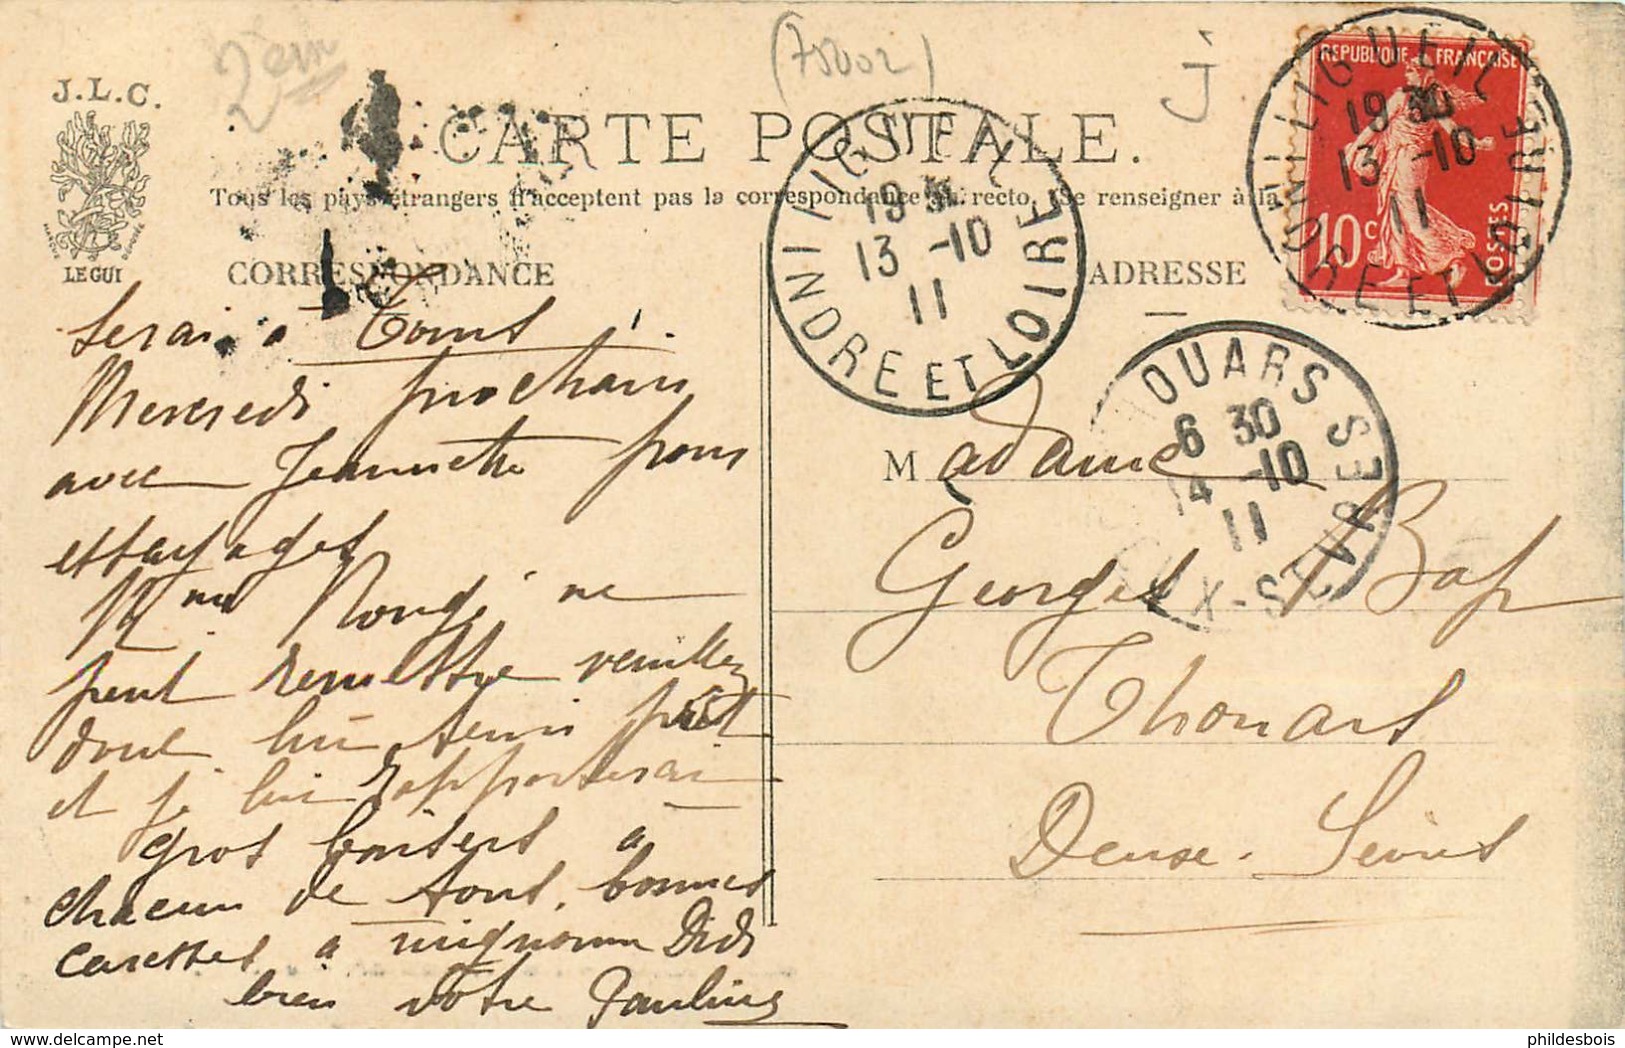 2em
(75002)
j
J.L.C.
LE GUI
CARTE POSTALE.
Tous les pays étrangers n'acceptent pas la correspondance au recto. (Se renseigner à la
CORRESPONDANCE
ADRESSE
REPUBLIQUE FRANÇAISE
10c
POSTES
LIGUEIL
19 30
13 -10
11
INDRE ET LOIRE
LIGUEIL
19 30
13 -10
11
INDRE ET LOIRE
THOUARS
6 30
14 -10
11
DEUX-SEVRES
Serai à Tours
Mercredi prochain
avec Jeannette pour
essayages
Mme Rougé ne
peut remettre veuillez
donc lui tenir prêt
et je lui rapporterai
gros baisers à
chacun de tous, bonnes
caresses à mignonne Didi
bien votre Pauline
Madame
Georges
Thouars
Deux-Sèvres
phildesbois www.delcampe.net